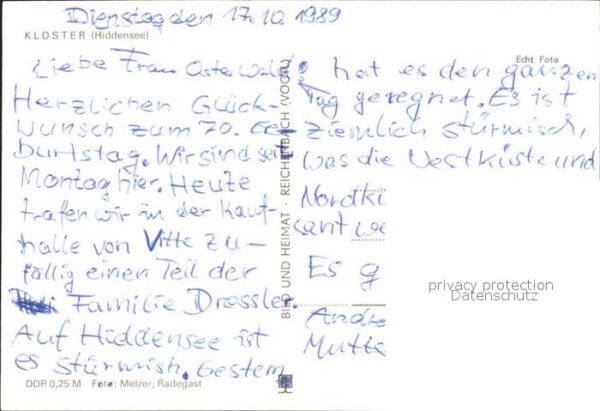 Dienstag den 17.10.1989
KLOSTER (Hiddensee)
Echt Foto
Liebe Frau Osterwald!
Herzlichen Glück-
wunsch zum 70. Ge-
burtstag. Wir sind seit
Montag hier. Heute
trafen wir in der Kauf-
halle von Vitte zu-
fällig einen Teil der
Familie Dressler.
Auf Hiddensee ist
es stürmish. Gestern
hat es den ganzen
Tag geregnet. Es ist
ziemlich stürmisch,
was die Westküste und
Nordkü
kant we
Es g
Andre
Mutte
BILD UND HEIMAT · REICHENBACH (VOGTL)
privacy protection
Datenschutz
DDR 0,25 M Foto: Melzer, Radegast